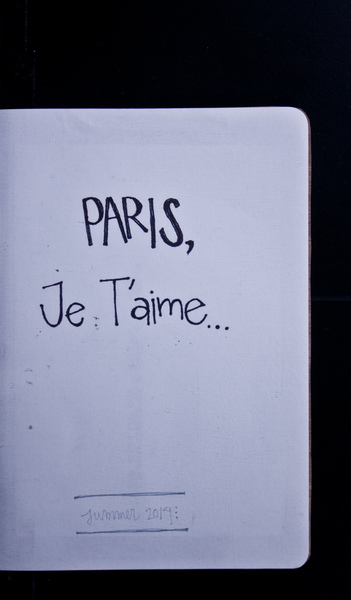 PARIS,
Je T'aime...
Summer 2014: